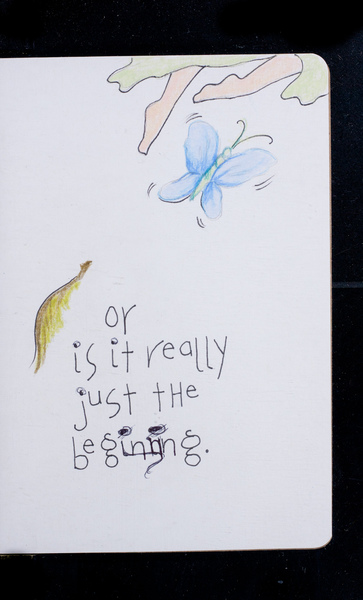 or
is it really
just the
beginning.